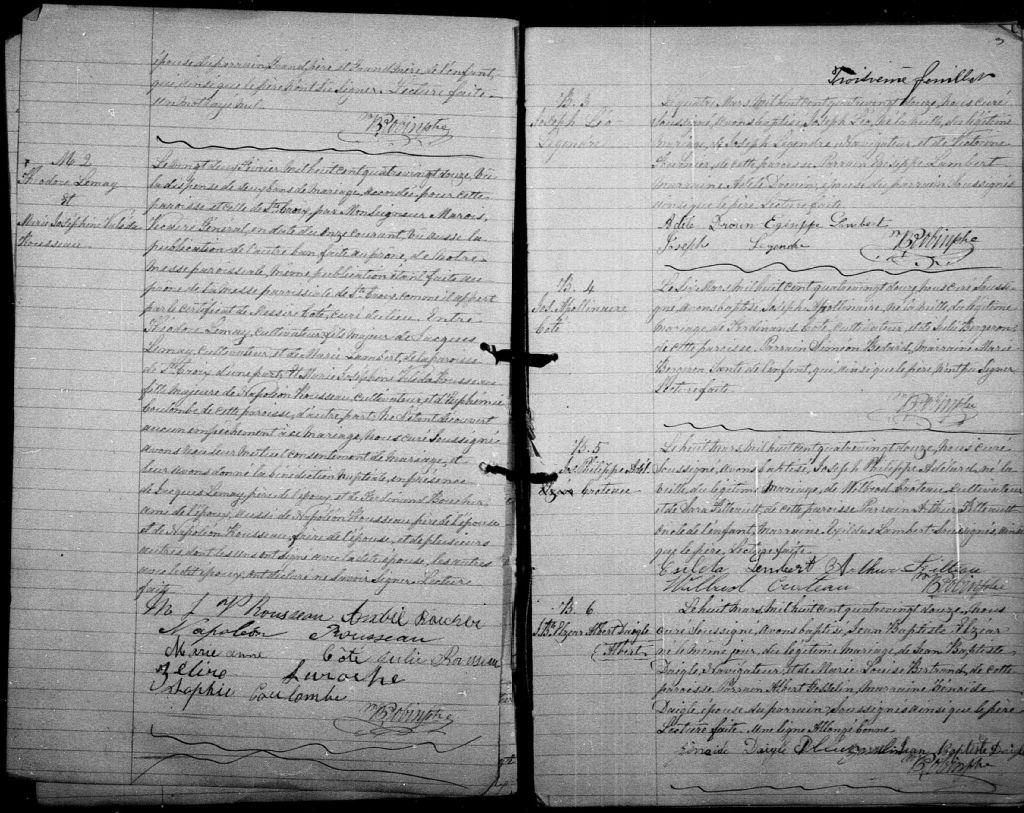 épouse du parrain Grand père et Grand'mère de l'enfant,
qui ainsi que le père n'ont su signer. Lecture faite
un mot rayé nul.
M. 2
Théodore Lemay
et
Marie Joséphine
Rousseau
Le vingt deux Février mil huit cent quatre vingt douze, Vu
la dispense de deux bans de mariage accordée pour cette
paroisse et celle de Ste Croix, par Monseigneur Marois,
Vicaire Général, en date du onze courant, Vu aussi la
publication de l'autre ban faite au prone, de Notre
Messe paroissiale, même publication étant faite au
prone de la messe paroissiale de Ste Croix, comme il appert
par le certificat de Messire Coté, curé du lieu. Entre
Théodore Lemay, cultivateur, fils majeur de Jacques
Lemay, cultivateur, et de Marie Lambert, de la paroisse
de Ste Croix d'une part; Et Marie Joséphine Rousseau
fille majeure de Napoléon Rousseau, cultivateur et d'Euphémie
Coulombe de cette paroisse, d'autre part; Ne s'étant découvert
aucun empêchement à ce mariage, Nous curé soussigné
avons reçu leur mutuel consentement de mariage, et
leur avons donné la bénédiction nuptiale, en présence
de Jacques Lemay, père de l'époux, et de Ferdinand Boucher
ami de l'époux, aussi de Napoléon Rousseau père de l'épouse
et de Napoléon Rousseau, frère de l'épouse, et de plusieurs
autres dont les uns ont signé avec la dite épouse, les autres
avec le dit époux, ont déclaré ne savoir signer. Lecture
faite
M J V Rousseau Boucher
Napoléon Rousseau
Marie anne Côté Julie Rousseau
Zélire Laroche
Coulombe
Troisième feuillet
B. 3
Joseph Léo
Legendre
Le quatre Mars, mil huit cent quatre vingt douze, nous curé
soussigné, avons baptisé, Joseph Léo, né la veille, du légitime
mariage, de Joseph Legendre navigateur, et de Victorine
de cette paroisse. Parrain Lambert
marraine Adèle Drouin, épouse du parrain, Soussignés
ainsi que le père. Lecture faite.
Adèle Drouin Lambert
Joseph Legendre
B. 4
Jos. Apollinaire
Coté
Le six Mars, mil huit cent quatre vingt douze, nous curé soussi-
gné avons baptisé Joseph Apollinaire, né la veille du légitime
mariage de Ferdinand Coté, cultivateur, et de Julie Bergeron
de cette paroisse. Parrain Siméon Bedard, marraine Marie
Bergeron Tante de l'enfant, qui ainsi que le père n'ont pu signer
Lecture faite.
B. 5
Jos Philippe Adél
Croteau
Le huit Mars, mil huit cent quatre vingt douze, nous curé
soussigné, avons baptisé, Joseph Philippe Adélard, né la
veille, du légitime mariage, de Wilbrod Croteau, cultivateur
et de cette paroisse Parrain Arthur
oncle de l'enfant, marraine Exilda Lambert Soussignés ainsi
que le père, Lecture faite.
Exilda Lambert Arthur
Wilbrod Croteau
B. 6
J. Bte Elzéar Albert Daigle
(Albert)
Le huit Mars, mil huit cent quatre vingt douze, Nous
curé soussigné, avons baptisé, Jean Baptiste Elzéar
né le même jour, du légitime mariage de Jean Baptiste
Daigle, Navigateur, et de Marie Louise Bertrand, de cette
paroisse. Parrain Albert marraine
Daigle épouse du parrain, Soussignés ainsi que le père
Lecture faite. Une ligne Allongé bonne
Daigle Jean Baptiste Daigle